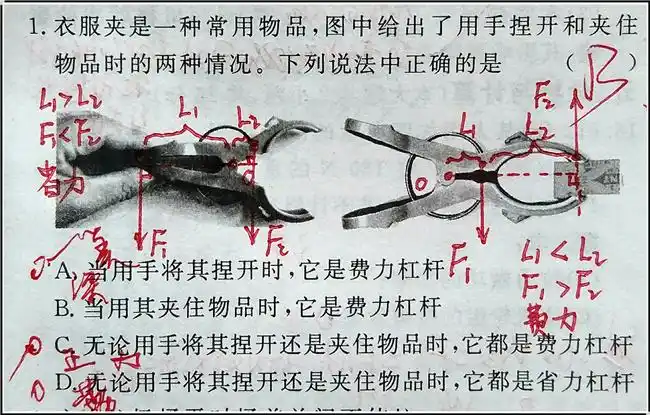 1. 衣服夹是一种常用物品,图中给出了用手捏开和夹住
物品时的两种情况。下列说法中正确的是 ( B )
L₁>L₂
F₁<F₂
省力
L₁
L₂
F₁
F₂
L₁
L₂
F₂
O
F₁
L₁<L₂
F₁>F₂
费力
A. 当用手将其捏开时,它是费力杠杆
B. 当用其夹住物品时,它是费力杠杆
C. 无论用手将其捏开还是夹住物品时,它都是费力杠杆
D. 无论用手将其捏开还是夹住物品时,它都是省力杠杆